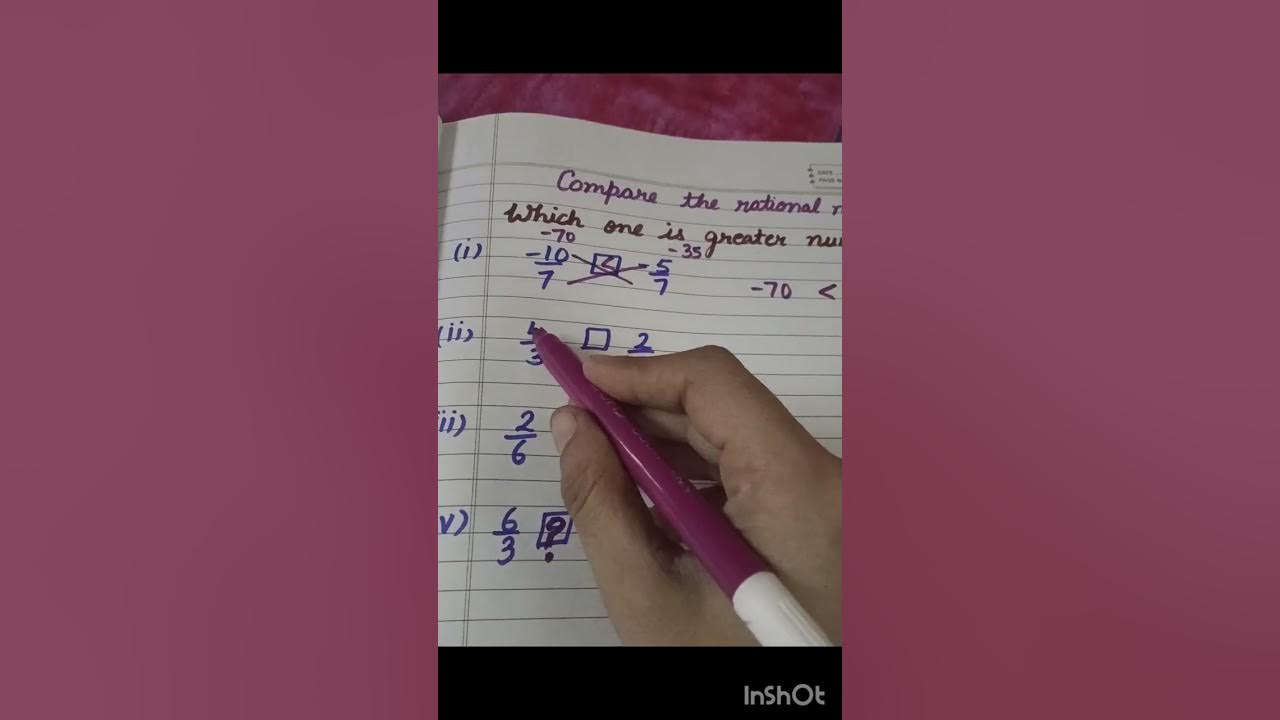 DATE
PAGE
Compare the rational
Which one is greater
-70
-35
(i) -10/7 < -5/7
-70 <
(ii) 4/3 □ 2
iii) 2/6
v) 6/3 ?
InShOt